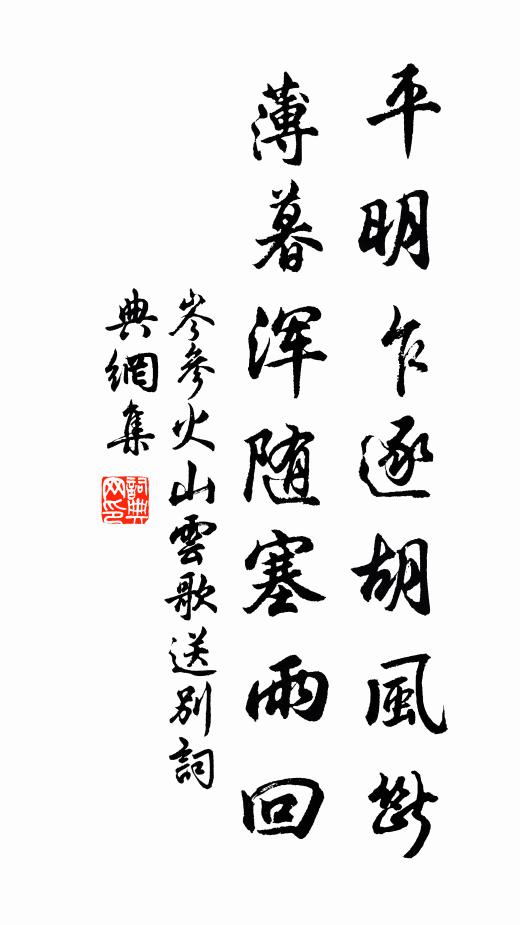 平明乍逐胡風斷
薄暮浑随塞雨回
岑參火山雲歌送別詞
典網集
詞典网印